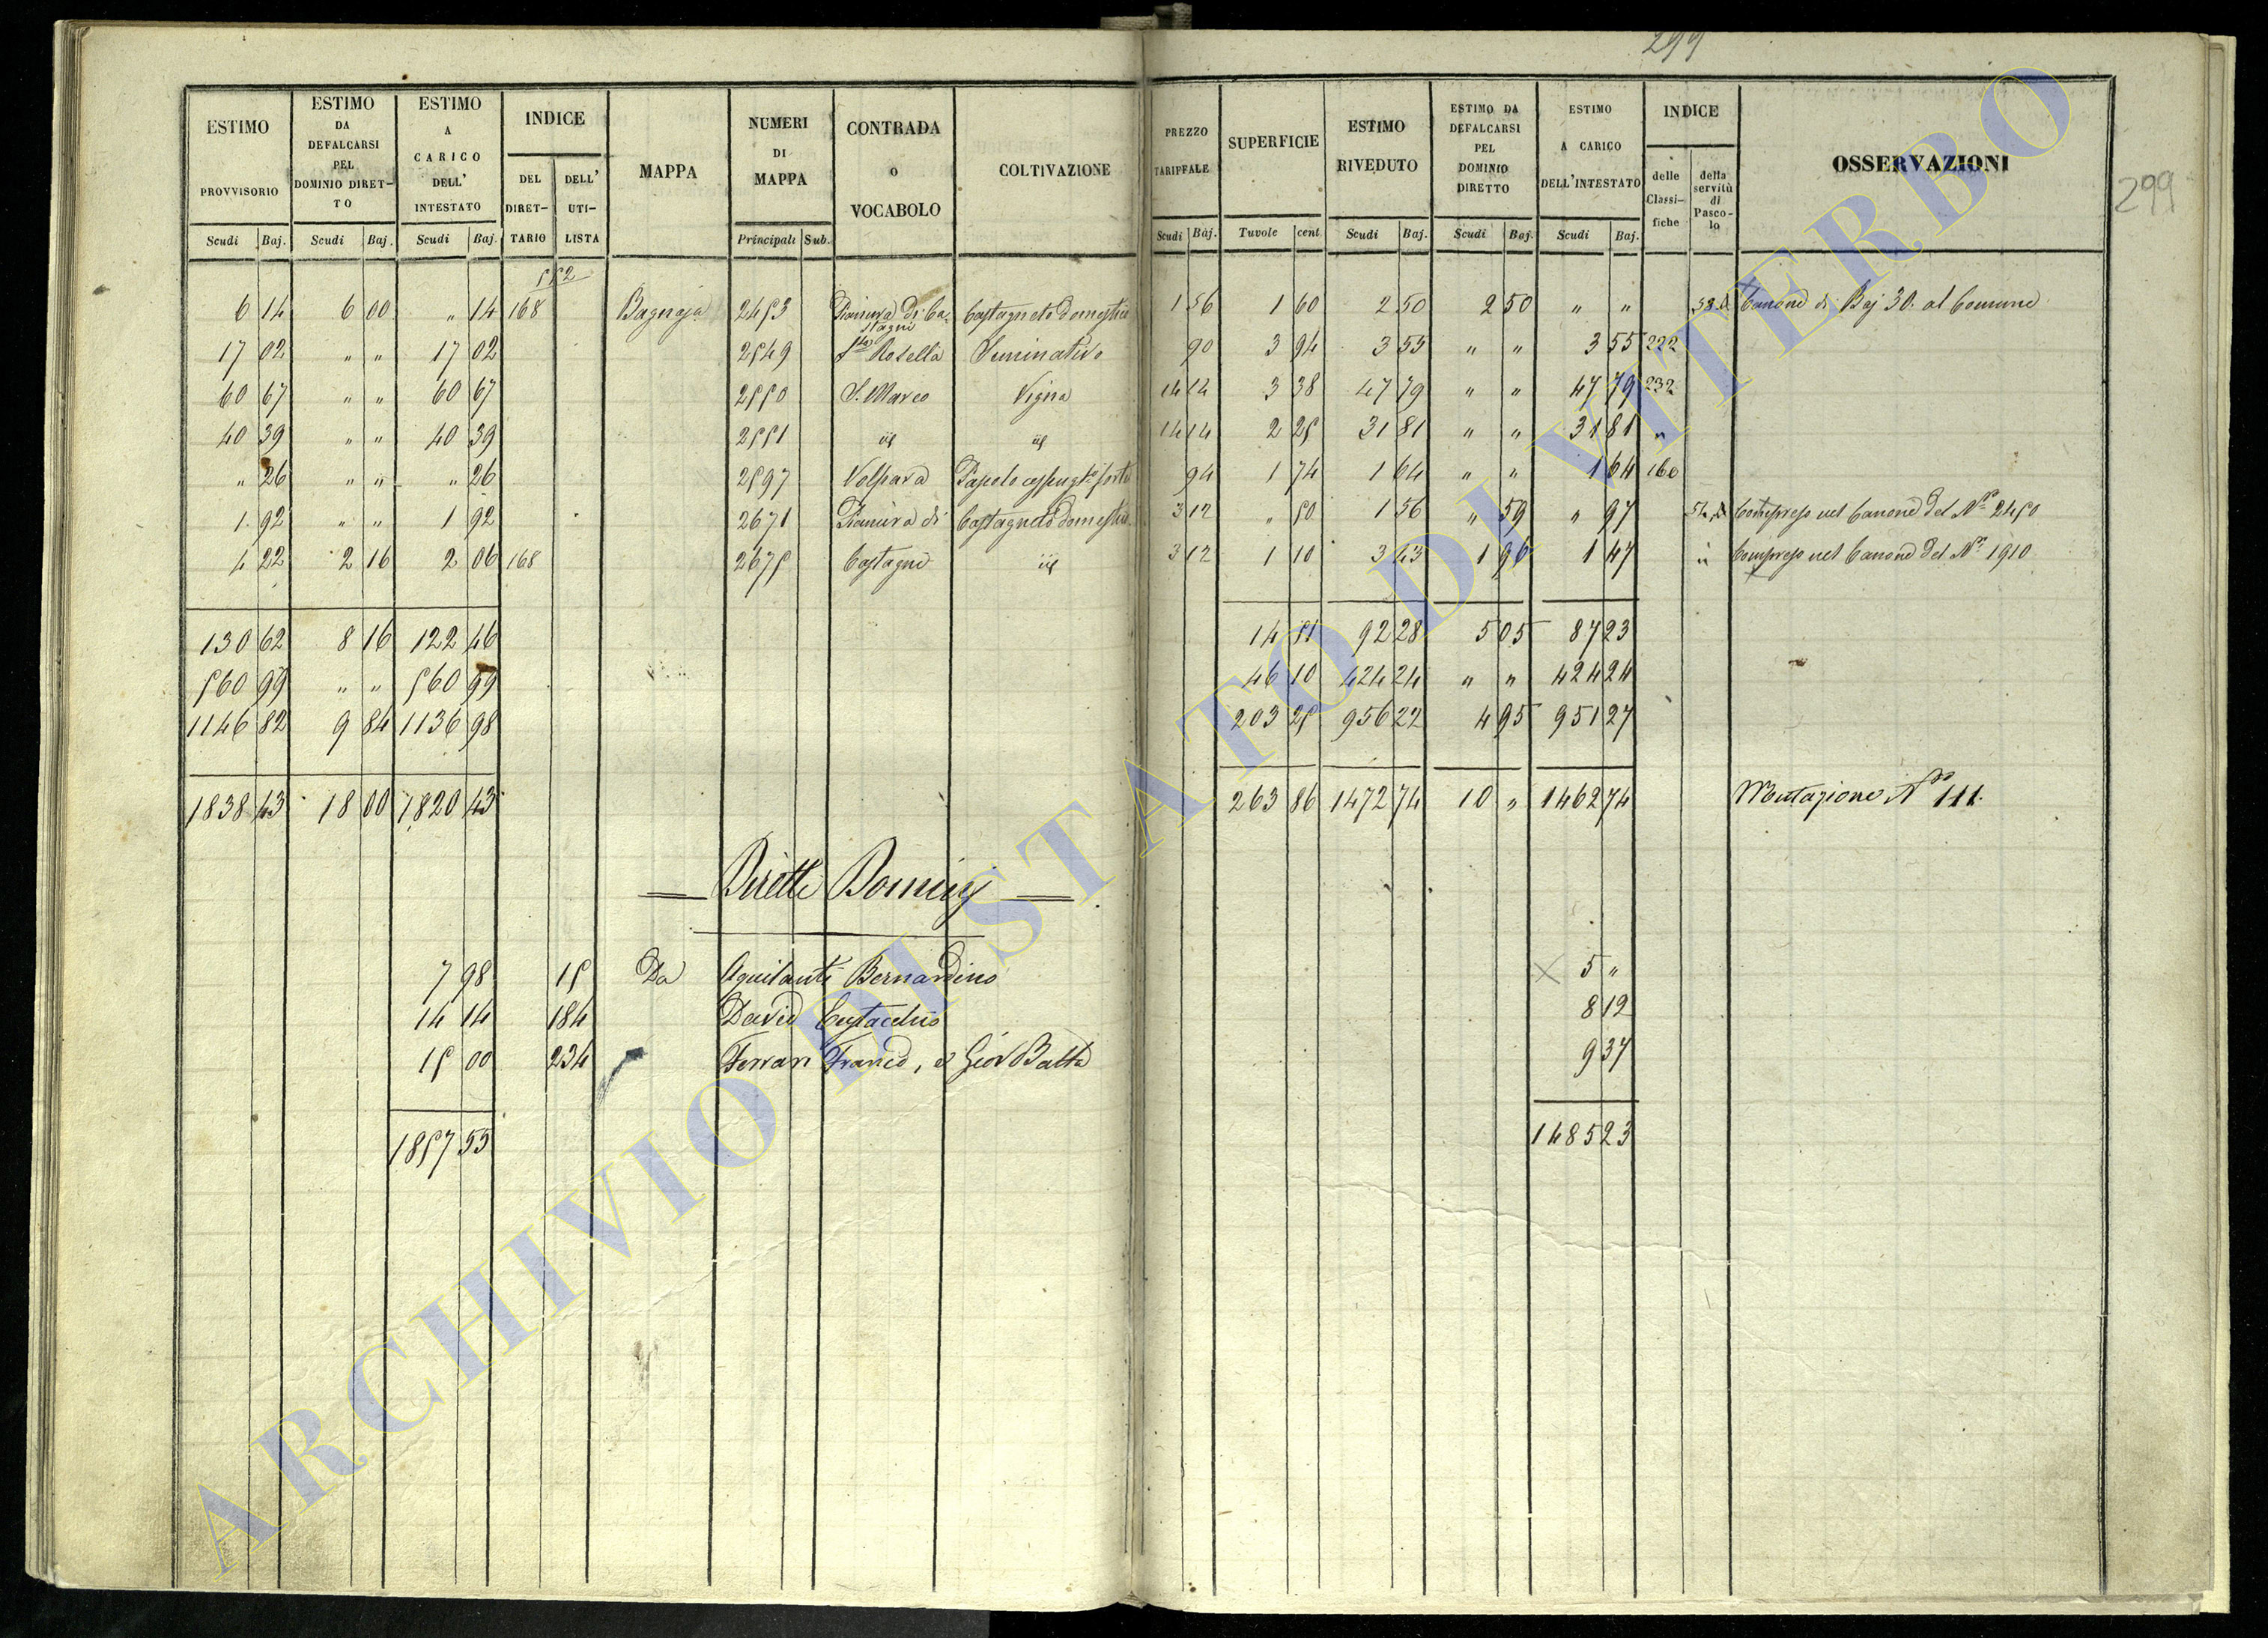 299
299
ESTIMO PROVVISORIO
ESTIMO DA DEFALCARSI PEL DOMINIO DIRET-TO
ESTIMO A CARICO DELL' INTESTATO
INDICE
DEL DIRET-TARIO
DELL' UTI-LISTA
MAPPA
NUMERI DI MAPPA
CONTRADA o VOCABOLO
COLTIVAZIONE
PREZZO TARIFFALE
SUPERFICIE
ESTIMO RIVEDUTO
ESTIMO DA DEFALCARSI PEL DOMINIO DIRETTO
ESTIMO A CARICO DELL'INTESTATO
INDICE
delle Classi-fiche
della servitù di Pasco-lo
OSSERVAZIONI
Scudi Baj. Scudi Baj. Scudi Baj. Principali Sub. Scudi Baj. Tavole cent Scudi Baj. Scudi Baj. Scudi Baj.
552
6 14 6 00 " 14 168 Bagnaja 2453 Pianura di Ca-stagni Castagneto domestico 1 56 1 60 2 50 2 50 " " Canone di Baj 30. al Comune
17 02 " " 17 02 2549 Rosella Seminativo 90 3 94 3 55 " " 3 55 222
60 67 " " 60 67 2550 S. Marco Vigna 14 14 3 38 47 79 " " 47 79 232
40 39 " " 40 39 2551 id id 14 14 2 25 31 81 " " 31 81 "
" 26 " " " 26 2597 Volpara Pascolo forte 94 1 74 1 64 " " 1 64 160
1 92 " " 1 92 2671 Pianura di Castagneto domestico 3 12 " 50 1 56 " 59 " 97 Compreso nel Canone del N.º 2450
4 22 2 16 2 06 168 2675 Castagni id 3 12 1 10 3 43 1 96 1 47 " Compreso nel Canone del N.º 1910
130 62 8 16 122 46 14 51 92 28 5 05 87 23
560 99 " " 560 99 46 10 424 24 " " 424 24
1146 82 9 84 1136 98 203 25 956 22 4 95 951 27
1838 43 18 00 1820 43 263 86 1472 74 10 " 1462 74 Mutazione N.º 111.
Dirette Dominj
7 98 15 Da Aquilanti Bernardino 5 "
14 14 184 David Eustacchio 8 12
15 00 234 Ferrari Franco, e Giov Batta 9 37
1857 55 1485 23
ARCHIVIO DI STATO DI VITERBO